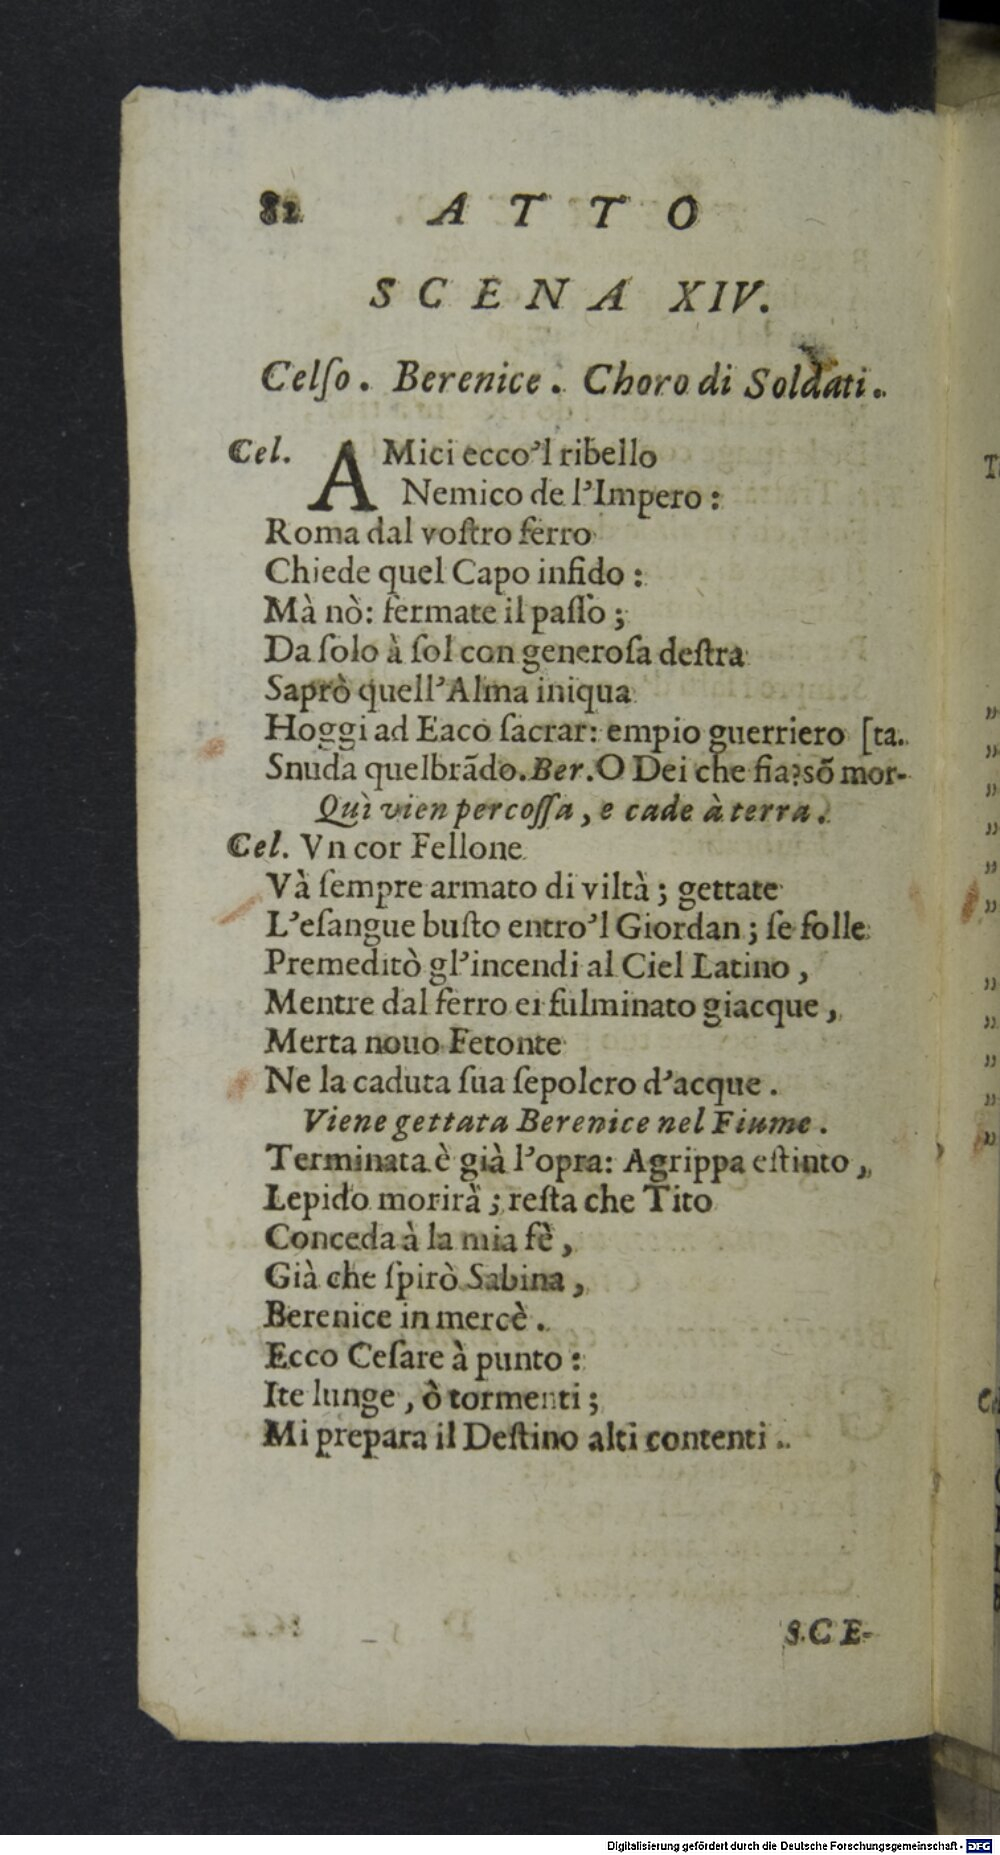 82 ATTO
SCENA XIV.
Celſo. Berenice. Choro di Soldati.
Cel. AMici ecco'l ribello
Nemico de l'Impero:
Roma dal voſtro ferro
Chiede quel Capo infido:
Mà nò: fermate il paſſo;
Da ſolo à ſol con generoſa deſtra
Saprò quell'Alma iniqua
Hoggi ad Eaco ſacrar: empio guerriero [ta.
Snuda quelbrādo. Ber. O Dei che fia? sō mor-
Quì vien percoſſa, e cade à terra.
Cel. Vn cor Fellone
Và ſempre armato di viltà; gettate
L'eſangue buſto entro'l Giordan; ſe folle
Premeditò gl'incendi al Ciel Latino,
Mentre dal ferro ei fulminato giacque,
Merta nouo Fetonte
Ne la caduta ſua ſepolcro d'acque.
Viene gettata Berenice nel Fiume.
Terminata è già l'opra: Agrippa eſtinto,
Lepido morirà; reſta che Tito
Conceda à la mia fè,
Già che ſpirò Sabina,
Berenice in mercè.
Ecco Ceſare à punto:
Ite lunge, ò tormenti;
Mi prepara il Deſtino alti contenti.
SCE-
Digitalisierung gefördert durch die Deutsche Forschungsgemeinschaft - DFG